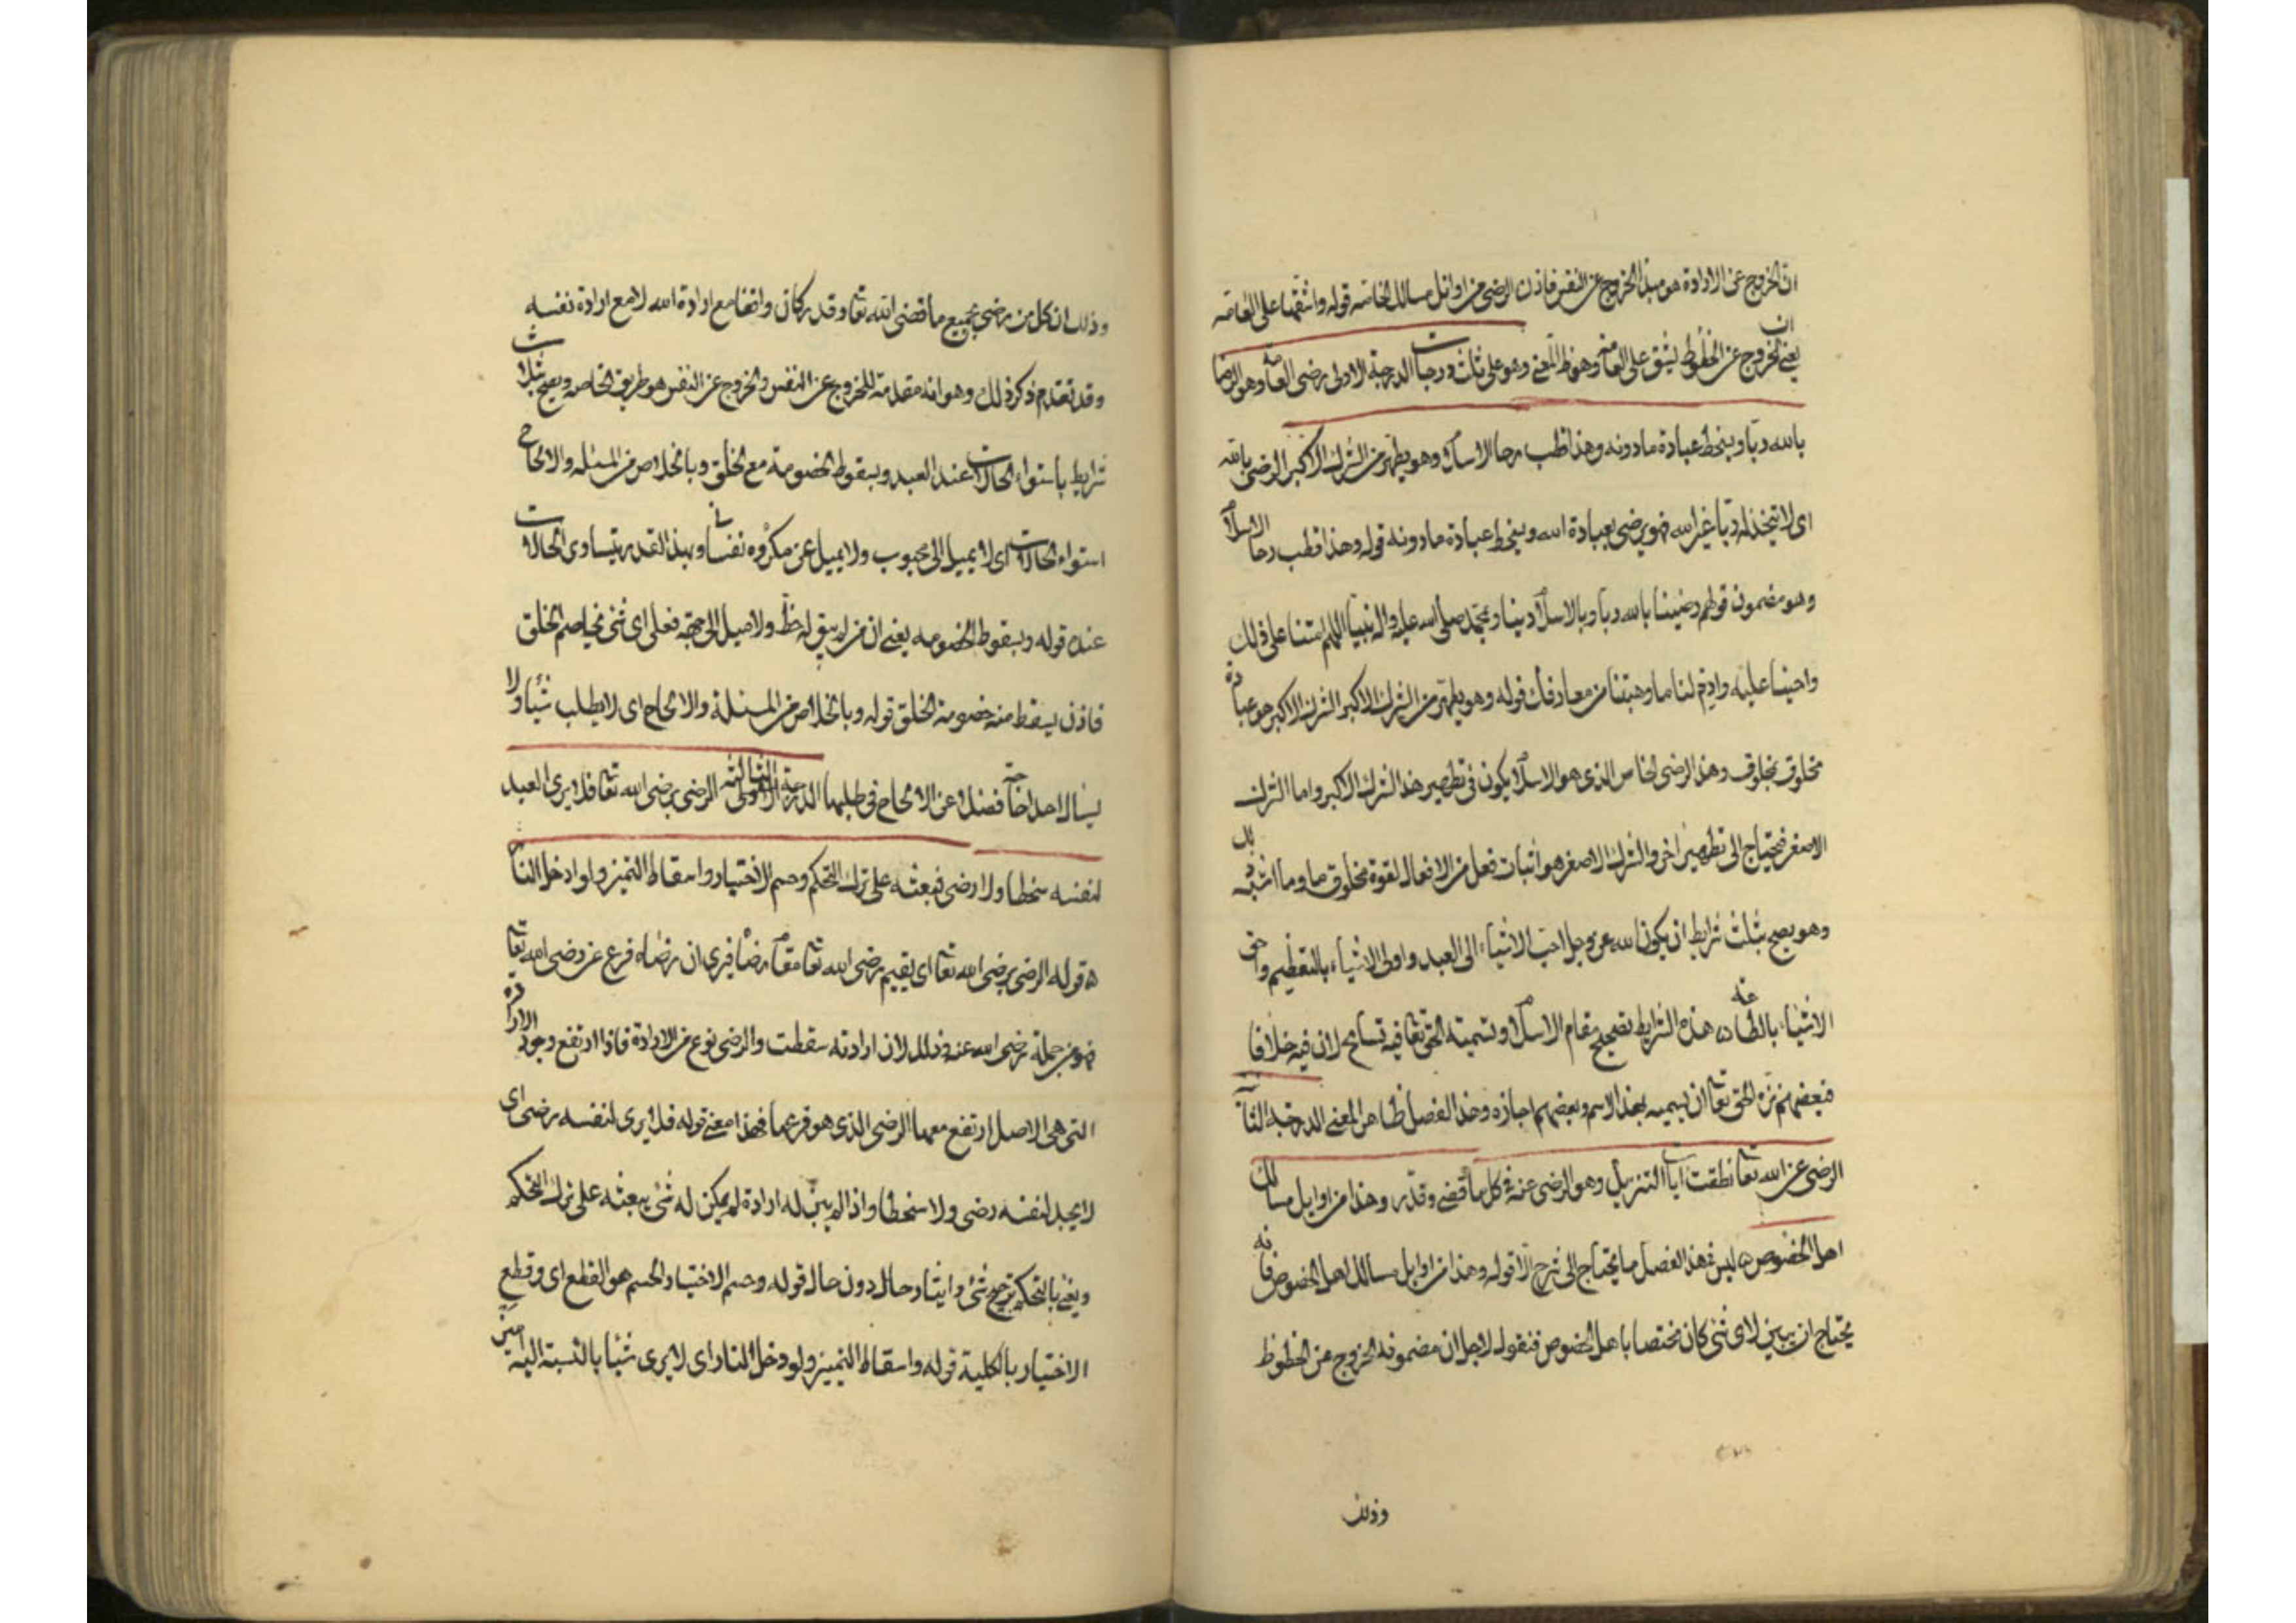 ان الخروج عن الارادة هو مبدأ الخروج عن النفس فاذن الرضى من اوائل مسالك الخاصه قوله واشقها على العامه
يعنى ان الخروج عن الحظوظ ليشق على العامه وهو ظ المعنى وهو على ثلث درجات الدرجة الاولى رضى العامه وهو الرضا
بالله ربا ويسخط عبادة ما دونه وهذا قطب رحا الاسلام وهو يطهر من الشرك الاكبر الرضى بالله
اى لا تتخذ له ربا غير الله فهو يرضى بعبادة الله ويسخط عبادة ما دونه قوله وهذا قطب رحا الاسلام
وهو مضمون قولهم رضينا بالله ربا وبالاسلام دينا وبمحمد صلى الله عليه واله نبيا اللهم امتنا على ذلك
واحينا عليه وادم لنا ما وهبتنا من معارفك قوله وهو يطهر من الشرك الاكبر الشرك الاكبر هو عبادة
مخلوق بمخلوق وهذا الرضى الخاص الذى هو الاسلام يكون فى تطهير هذا الشرك الاكبر واما الشرك
الاصغر فيحتاج الى تطهير اخر والشرك الاصغر هو اثبات فعل من الافعال لقوة مخلوق ما وما اشبه ذلك
وهو يصح بثلث شرايط ان يكون الله عز وجل احب الاشياء الى العبد واولى الاشياء بالتعظيم واحق
الاشياء بالطاعه ه هذه الشرايط تصحيح مقام الاسلام وتسميته الحق تعا فيه تسامح لان فيه خلافا
فبعضهم نزه الحق تعا ان يسميه بهذا الاسم وبعضهم اجازه وهذا الفصل ظاهر المعنى الدرجة الثانية
الرضى عن الله تعا نطقت ايات التنزيل وهو الرضى عنه فى كل ما قضى وقدر وهذا من اوايل مسالك
اهل الخصوص ه ليس فى هذا الفصل ما يحتاج الى شرح الا قوله وهذا من اوايل مسالك اهل الخصوص فانه
يحتاج ان يبين لاى شئ كان مختصا باهل الخصوص فنقول لاجل ان مضمونه الخروج عن الحظوظ
وذلك
وذلك ان كل من رضى بجميع ما قضى الله تعا وقدر كان واقفا مع ارادة الله لا مع ارادة نفسه
وقد تقدم ذكر ذلك وهو انه مقدمة للخروج عن النفس والخروج عن النفس هو طريق الخاصه ويصح بثلاث
شرايط باستواء الحالات عند العبد وبسقوط الخصومة مع الخلق وبالخلاص من المسئله والالحاح
استواء الحالات اى لا يميل الى محبوب ولا يميل عن مكروه نفسانى وبهذا القدر يتساوى الحالات
عنده قوله وبسقوط الخصومه يعنى ان من لم يبق له حظ ولا ميل الى جهة فعلى اى شئ يخاصم الخلق
فاذن يسقط منه خصومة الخلق قوله وبالخلاص من المسئلة والالحاح اى لا يطلب شيئا ولا
يسأل احدا حاجة فضلا عن الالحاح فى طلبها الدرجة الثالثه الرضى برضى الله تعا فلا يرى العبد
لنفسه سخطا ولا رضى فيبعثه على ترك التحكم وحسم الاختيار واسقاط التميز ولو ادخل النار
ه قوله الرضى برضى الله تعا اى يقيم رضى الله تعا مقام رضاه فيرى ان رضاه فرع عن رضى الله تعا
فهو من جملة رضى الله عنه وذلك لان ارادته سقطت والرضى نوع من الارادة فاذا ارتفع وجود الارادة
التى هى الاصل ارتفع معها الرضى الذى هو فرعها فهذا معنى قوله فلا يرى لنفسه رضى اى
لا يجد لنفسه رضى ولا سخطا واذا لم يبق له ارادة لم يكن له شئ يبعثه على ترك التحكم
ويعنى بالتحكم ترجيح شئ وايثار حال دون حال قوله وحسم الاختيار الحسم هو القطع اى وقطع
الاختيار بالكلية قوله واسقاط التميز ولو دخل النار اى لا يرى شيئا بالنسبة اليه